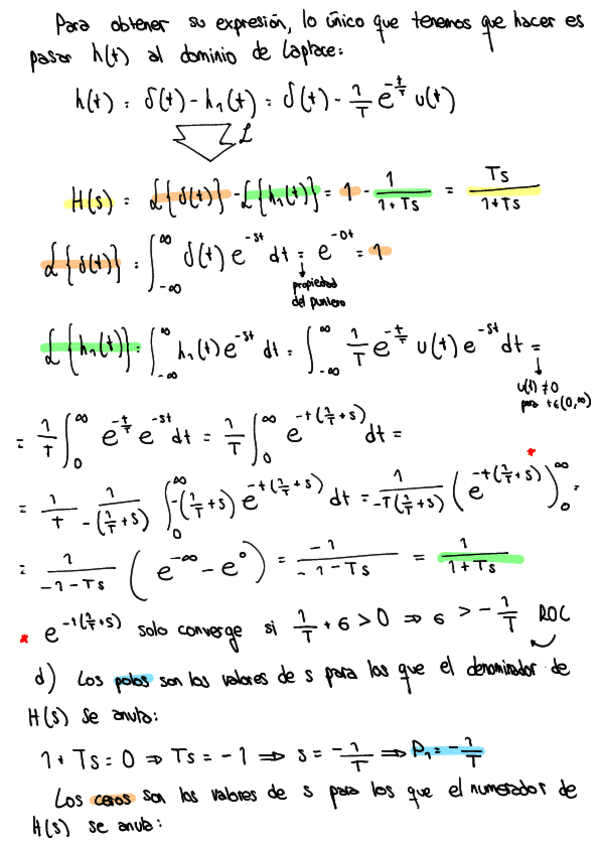 Para obtener su expresión, lo único que tenemos que hacer es
pasar h(t) al dominio de Laplace:
h(t) = δ(t) - h₁(t) = δ(t) - 1/T e^(-t/T) u(t)
ℒ
H(s) = ℒ{δ(t)} - ℒ{h₁(t)} = 1 - 1/(1+Ts) = Ts/(1+Ts)
ℒ{δ(t)} = ∫_{-∞}^{∞} δ(t) e^(-st) dt = e^(-0t) = 1
propiedad
del puntero
ℒ{h₁(t)} = ∫_{-∞}^{∞} h₁(t) e^(-st) dt = ∫_{-∞}^{∞} 1/T e^(-t/T) u(t) e^(-st) dt =
u(t) ≠ 0
para t ∈ (0,∞)
= 1/T ∫_0^∞ e^(-t/T) e^(-st) dt = 1/T ∫_0^∞ e^(-t(1/T + s)) dt =
= 1/T 1/(-(1/T + s)) ∫_0^∞ -(1/T + s) e^(-t(1/T + s)) dt = 1/(-T(1/T + s)) (e^(-t(1/T + s)))_0^∞ =
*
= 1/(-1-Ts) (e^(-∞) - e^0) = -1/(-1-Ts) = 1/(1+Ts)
* e^(-t(1/T + s)) solo converge si 1/T + σ > 0 ⇒ σ > -1/T ROC
d) Los polos son los valores de s para los que el denominador de
H(s) se anula:
1 + Ts = 0 ⇒ Ts = -1 ⇒ s = -1/T ⇒ P₁ = -1/T
Los ceros son los valores de s para los que el numerador de
H(s) se anula: